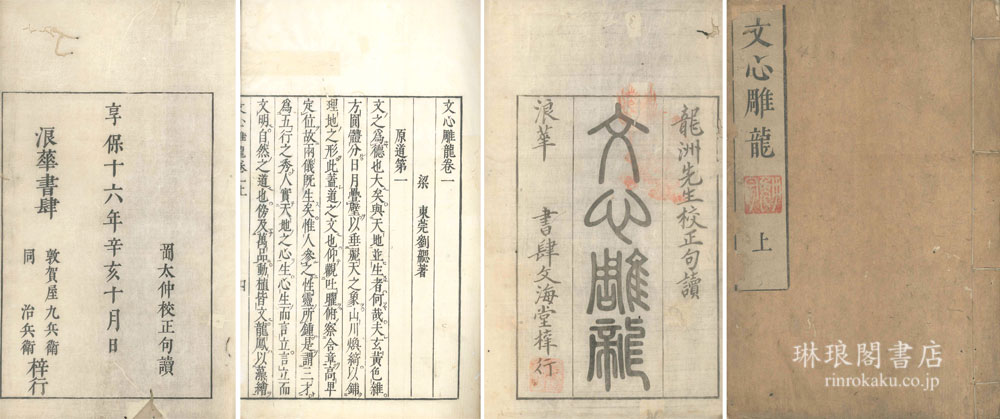 文心雕龍
上
龍洲先生校正句讀
文心雕龍
浪華 書肆文海堂梓行
文心雕龍卷一
梁 東莞劉勰著
原道第一
文之為德也大矣與天地並生者何哉夫玄黃色雜
方圓體分日月疊璧以垂麗天之象山川煥綺以鋪
理地之形此蓋道之文也仰觀吐曜俯察含章高卑
定位故兩儀既生矣惟人參之性靈所鍾是謂三才
為五行之秀人實天地之心生心生而言立言立而
文明自然之道也傍及萬品動植皆文龍鳳以藻繪
岡太仲校正句讀
享保十六年辛亥十月日
浪華書肆
敦賀屋九兵衛
同 治兵衛
梓行
琳琅閣書店
rinrokaku.co.jp